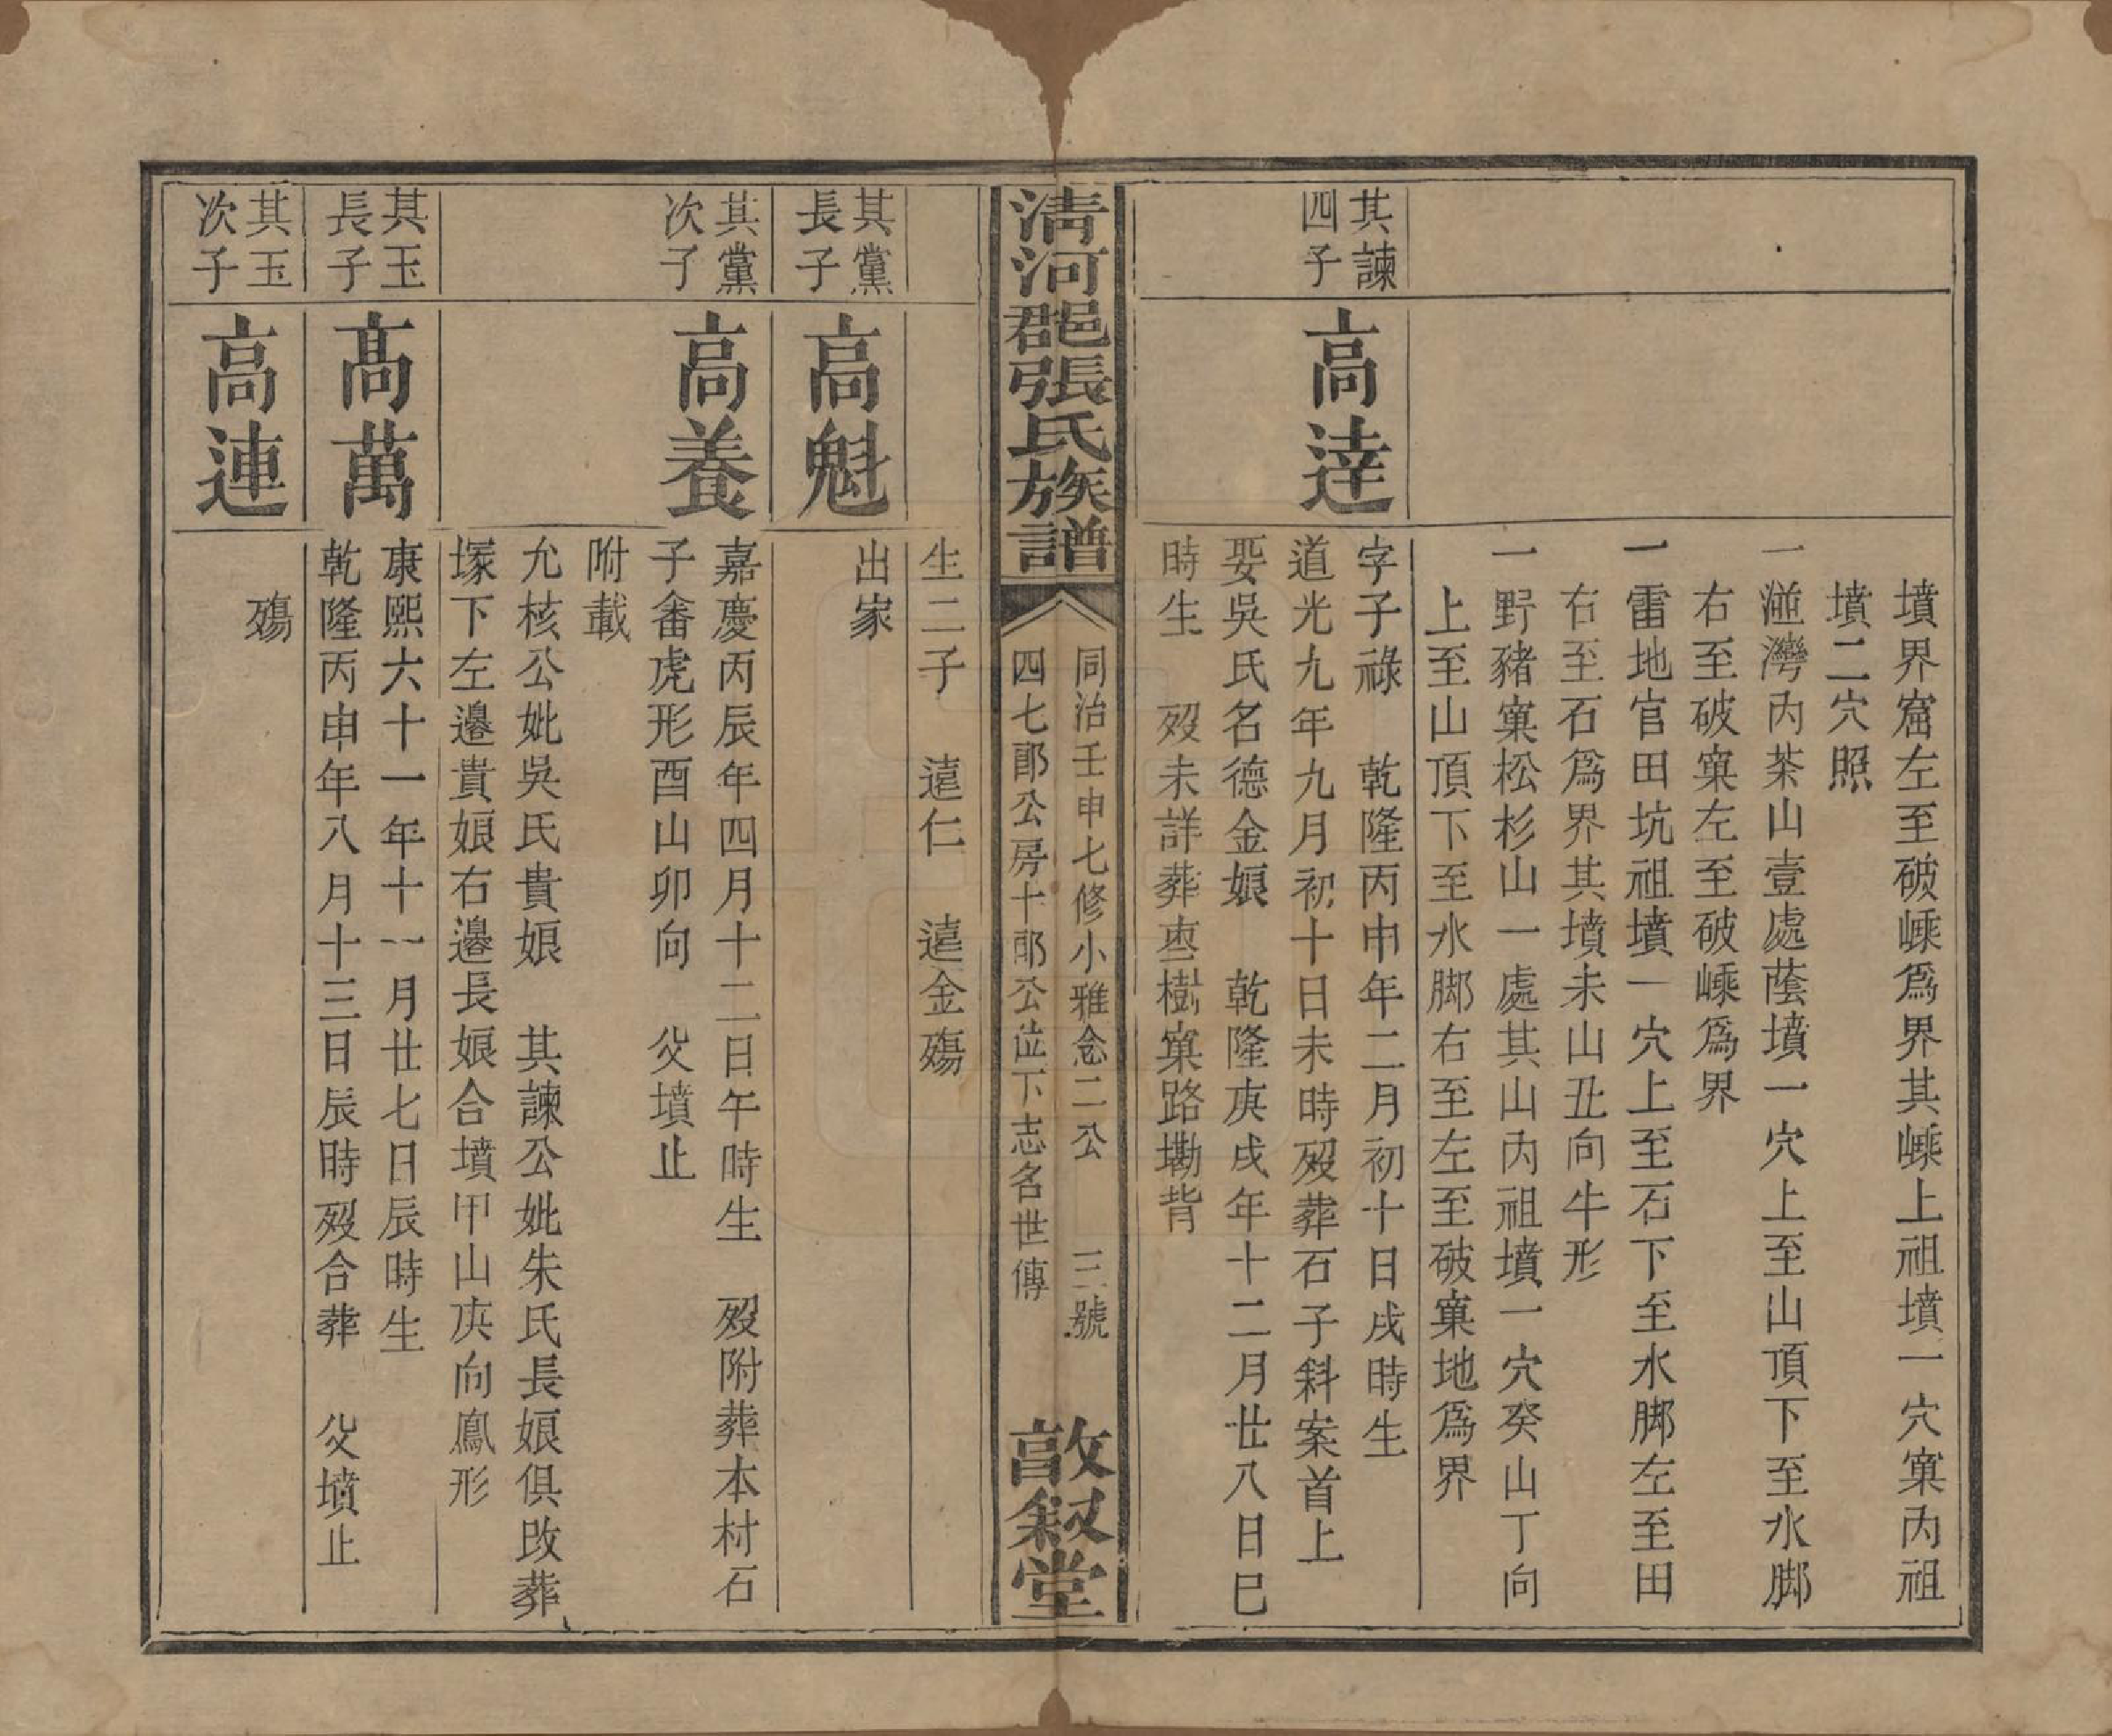 墳界窟左至破嵊爲界其嵊上祖墳一穴窠內祖
墳二穴照
一湴灣內茶山壹處蔭墳一穴上至山頂下至水脚
右至破窠左至破嵊爲界
一雷地官田坑祖墳一穴上至石下至水脚左至田
右至石爲界其墳未山丑向牛形
一野豬窠松杉山一處其山內祖墳一穴癸山丁向
上至山頂下至水脚右至左至破窠地爲界
其諫
四子
高達
字子祿 乾隆丙申年二月初十日戌時生
道光九年九月初十日未時歿葬石子斜案首上
娶吳氏名德金娘 乾隆庚戌年十二月廿八日巳
時生 歿未詳葬枣樹窠路塝背
清河郡張氏族譜
同治壬申七修小雅念二公 三號
四七郎公房十郎公位下志名世傳
敦敘堂
生二子 遠仁 遠金殤
其黨
長子
高魁
出家
其黨
次子
高養
嘉慶丙辰年四月十二日午時生 歿附葬本村石
子畲虎形酉山卯向 父墳止
附載
允核公妣吳氏貴娘 其諫公妣朱氏長娘俱改葬
塚下左邊貴娘右邊長娘合墳甲山庚向鳳形
其玉
長子
高萬
康熙六十一年十一月廿七日辰時生
乾隆丙申年八月十三日辰時歿合葬 父墳止
其玉
次子
高連
殤